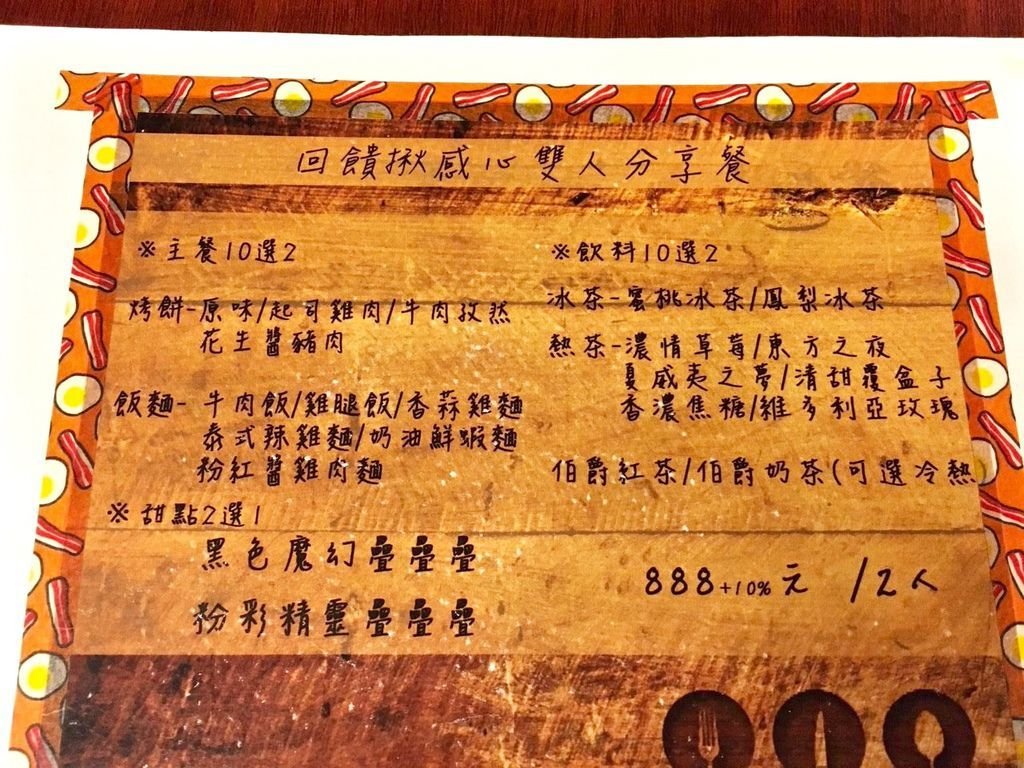 回饋揪感心雙人分享餐
※主餐10選2
烤餅-原味/起司雞肉/牛肉孜然
花生醬豬肉
飯麵-牛肉飯/雞腿飯/香蒜雞麵
泰式辣雞麵/奶油鮮蝦麵
粉紅醬雞肉麵
※甜點2選1
黑色魔幻疊疊疊
粉彩精靈疊疊疊
※飲料10選2
冰茶-蜜桃冰茶/鳳梨冰茶
熱茶-濃情草莓/東方之夜
夏威夷之夢/清甜覆盆子
香濃焦糖/維多利亞玫瑰
伯爵紅茶/伯爵奶茶(可選冷熱
888+10%元 /2人